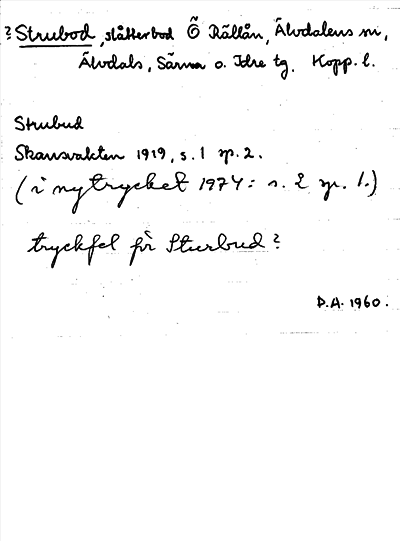 ? Strubod, slåtterbod Ö Rällån, Älvdalens sn,
Älvdals, Särna o. Idre tg. Kopp. l.
Strubud
Skansvakten 1919, s. 1 sp. 2.
(i nytrycket 1974: s. 2 sp. 1.)
tryckfel för Sturbud?
D.A. 1960.